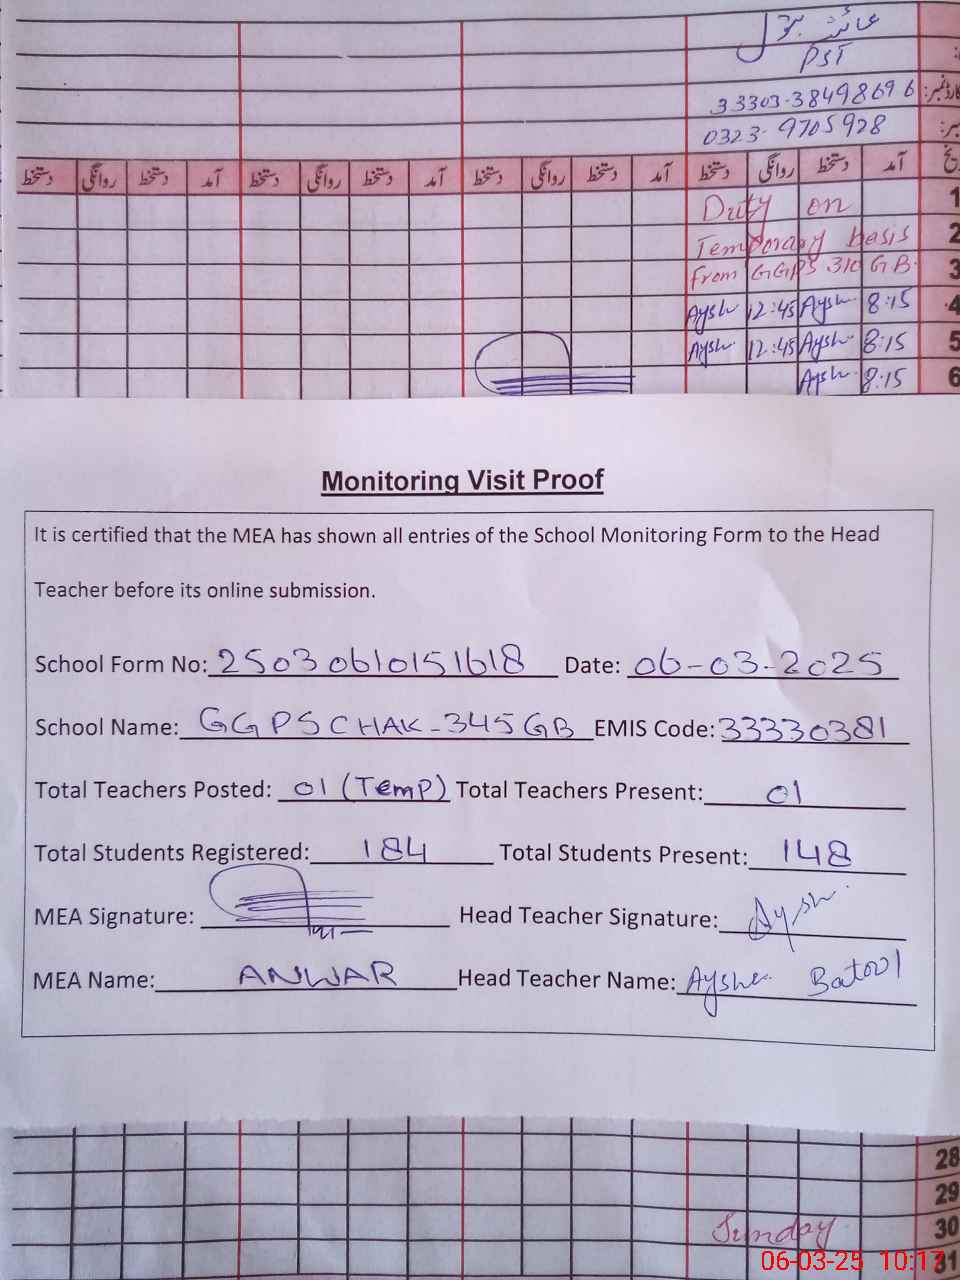 عائشہ بتول
PST
کارڈنمبر: 33303-38498696
بر: 0323-9705928
دستخط روانگی دستخط آمد دستخط روانگی دستخط آمد دستخط روانگی دستخط آمد دستخط روانگی دستخط آمد
Duty on 1
Temporary basis 2
From GGPS 310 GB. 3
Aysh 12:45 Aysh 8:15 4
Aysh 12:45 Aysh 8:15 5
Aysh 8:15 6
Monitoring Visit Proof
It is certified that the MEA has shown all entries of the School Monitoring Form to the Head
Teacher before its online submission.
School Form No: 25030610151618 Date: 06-03-2025
School Name: GGPS CHAK-345GB EMIS Code: 33330381
Total Teachers Posted: 01 (Temp) Total Teachers Present: 01
Total Students Registered: 184 Total Students Present: 148
MEA Signature: Head Teacher Signature: Aysh
MEA Name: ANWAR Head Teacher Name: Aysha Batool
28
29
Sunday 30
31
06-03-25 10:17